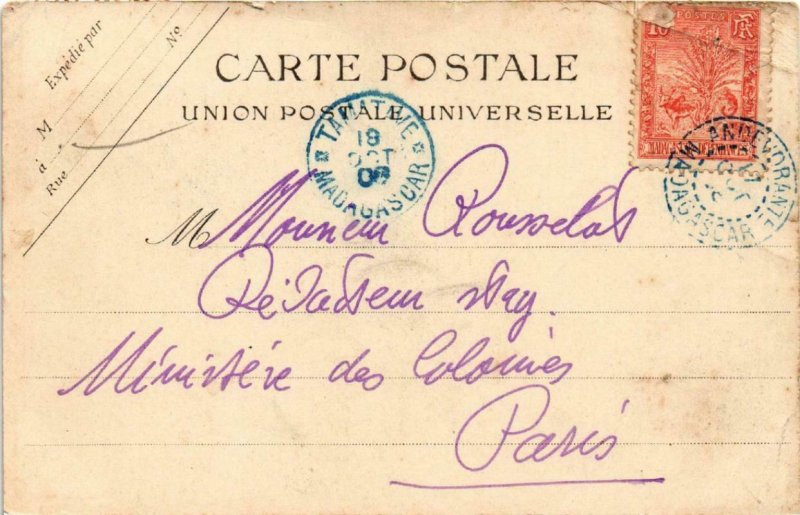 Expédié par
No
M
à
Rue
CARTE POSTALE
UNION POSTALE UNIVERSELLE
10 POSTES RF
TAMATAVE
18
OCT
06
MADAGASCAR
ANDEVORANTE
MADAGASCAR
M Monsieur Rousselot
Rédacteur
Ministère des Colonies
Paris